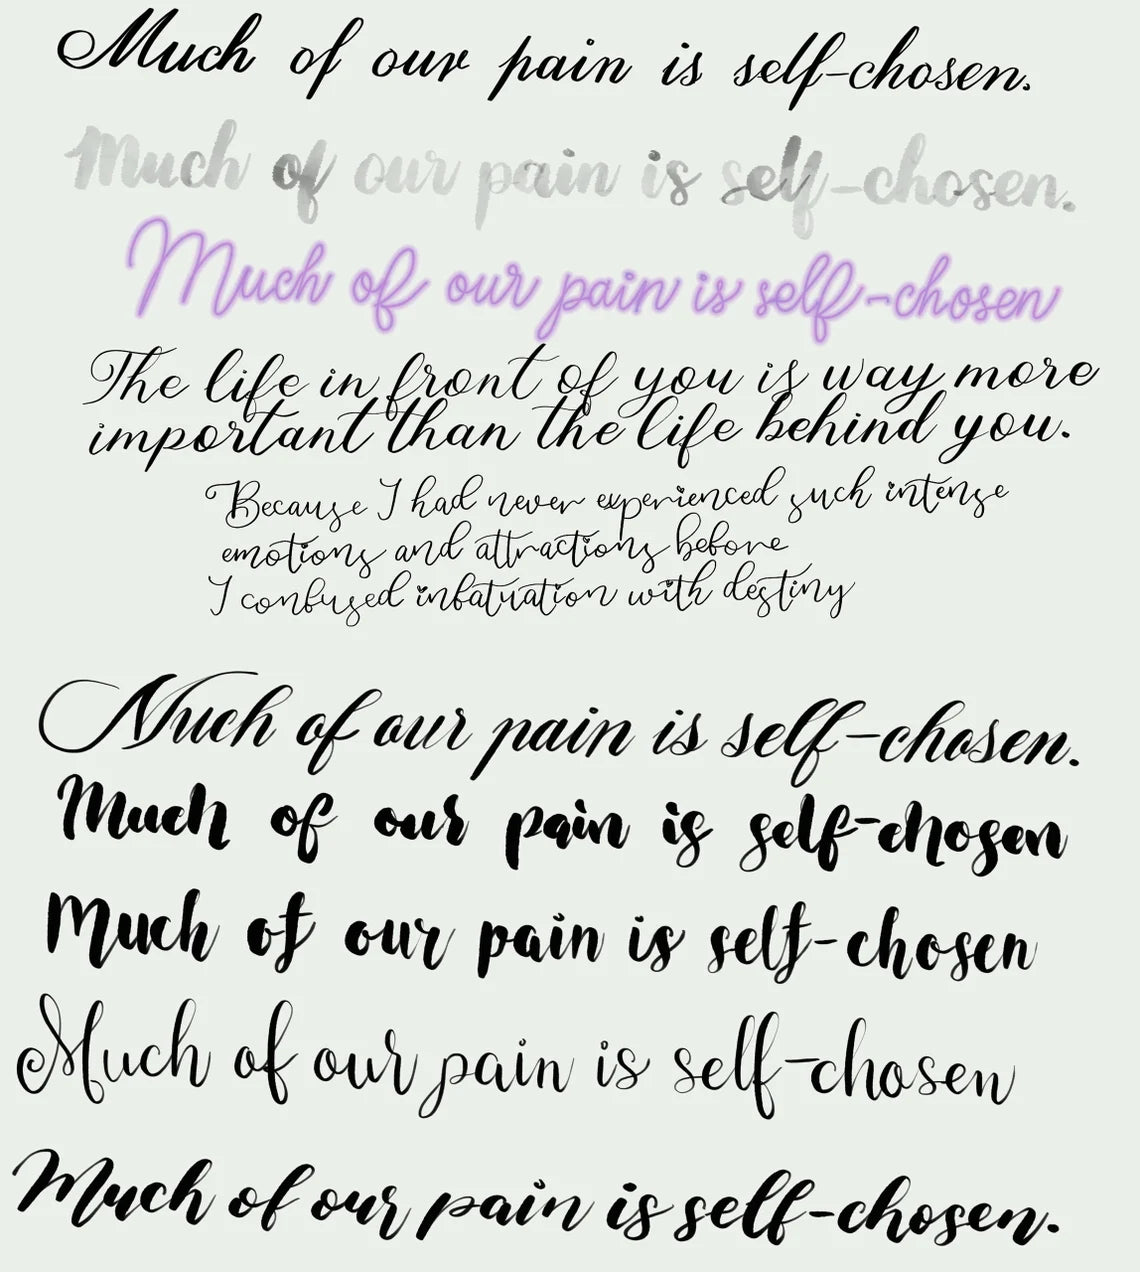 Much of our pain is self-chosen.
Much of our pain is self-chosen.
Much of our pain is self-chosen
The life in front of you is way more
important than the life behind you.
Because I had never experienced such intense
emotions and attractions before
I confused infatuation with destiny
Much of our pain is self-chosen.
Much of our pain is self-chosen
Much of our pain is self-chosen
Much of our pain is self-chosen
Much of our pain is self-chosen.